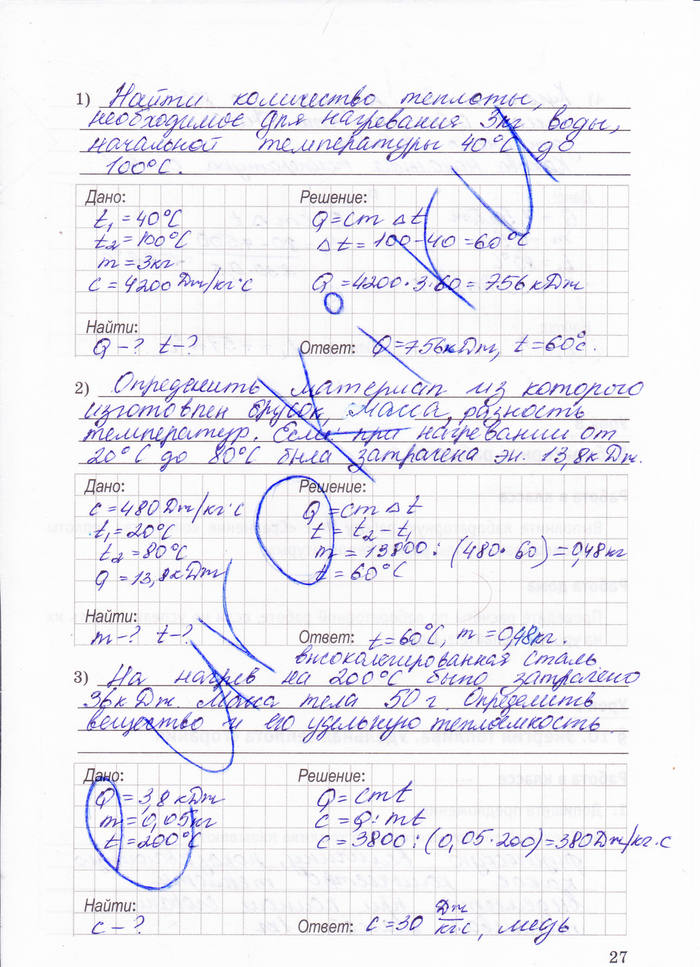 1) Найти количество теплоты,
необходимое для нагревания 3кг воды,
начальной температуры 40°С до
100°С.
Дано: Решение:
t₁ = 40°С Q = cm Δt
t₂ = 100°С Δt = 100-40 = 60°С
m = 3кг
c = 4200 Дж/кг·с Q = 4200·3·60 = 756 кДж
Найти:
Q - ? t - ? Ответ: Q = 756 кДж, t = 60°с.
2) Определить материал из которого
изготовлен брусок, масса, разность
температур. Если при нагревании от
20°С до 80°С была затрачена эн. 13,8 кДж.
Дано: Решение:
c = 480 Дж/кг·с Q = cm Δt
t₁ = 20°С t = t₂ - t₁
t₂ = 80°С m = 13800 : (480·60) = 0,48 кг
Q = 13,8 кДж t = 60°С
Найти:
m - ? t - ? Ответ: t = 60°С, m = 0,48 кг.
высоколегированная сталь
3) На нагрев на 200°С было затрачено
36 кДж. Масса тела 50 г. Определить
вещество и его удельную теплоёмкость
Дано: Решение:
Q = 3,8 кДж Q = cmt
m = 0,05 кг c = Q : mt
t = 200°С c = 3800 : (0,05·200) = 380 Дж/кг·с
Найти:
c - ? Ответ: c = 30 Дж/кг·с, медь
27